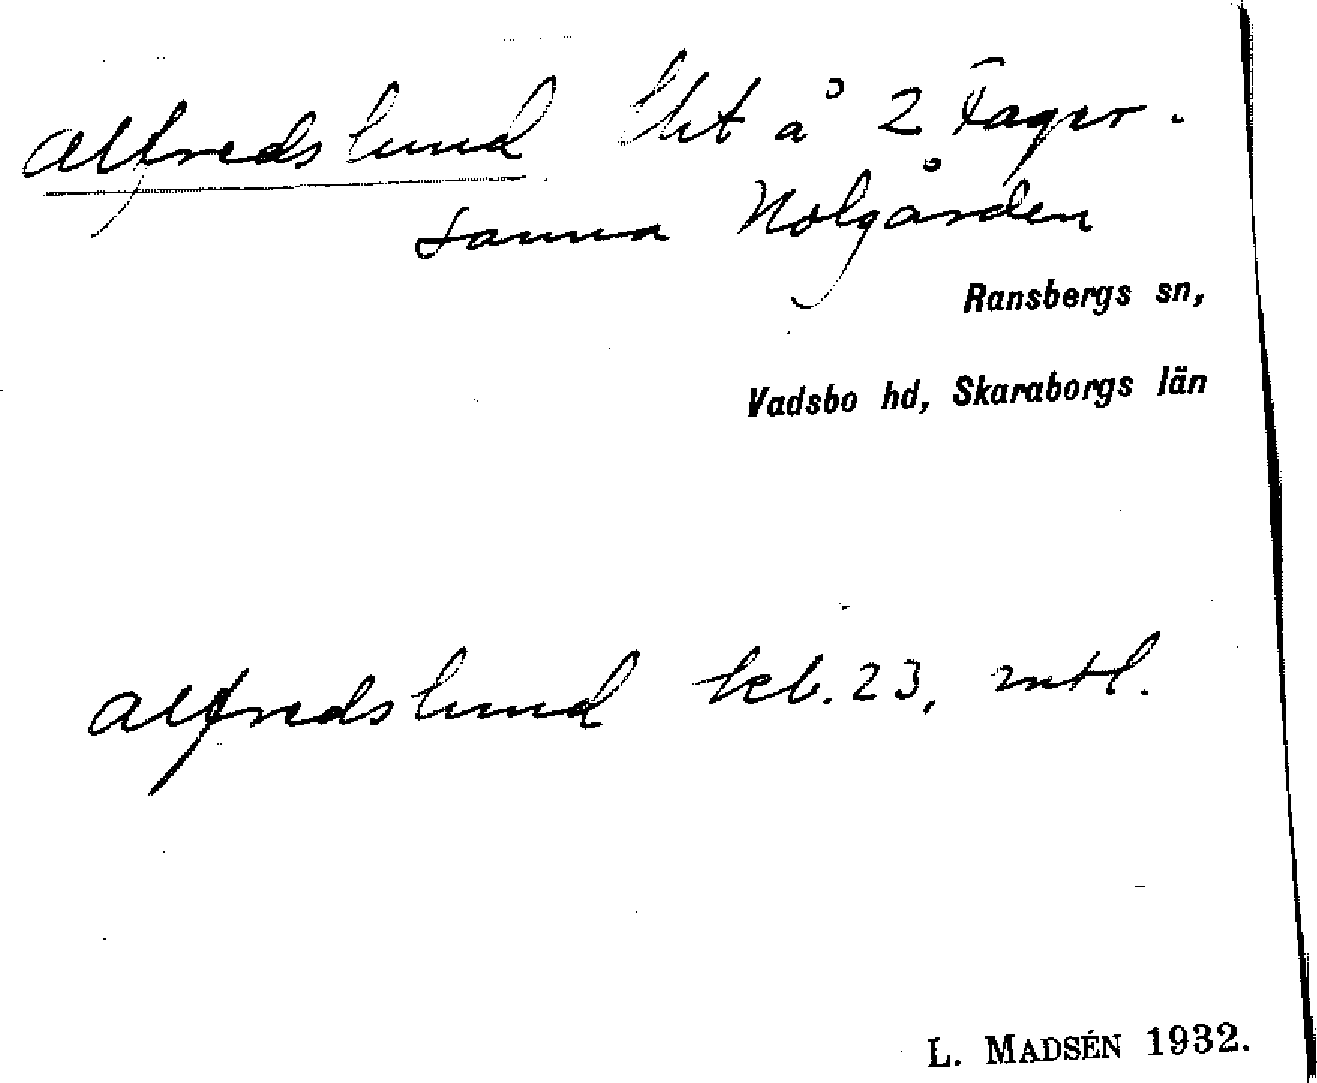 Alfredslund lht å 2 Fager-
sanna Nolgården
Ransbergs sn,
Vadsbo hd, Skaraborgs län
Alfredslund kb. 23, mtl.
L. MADSÉN 1932.